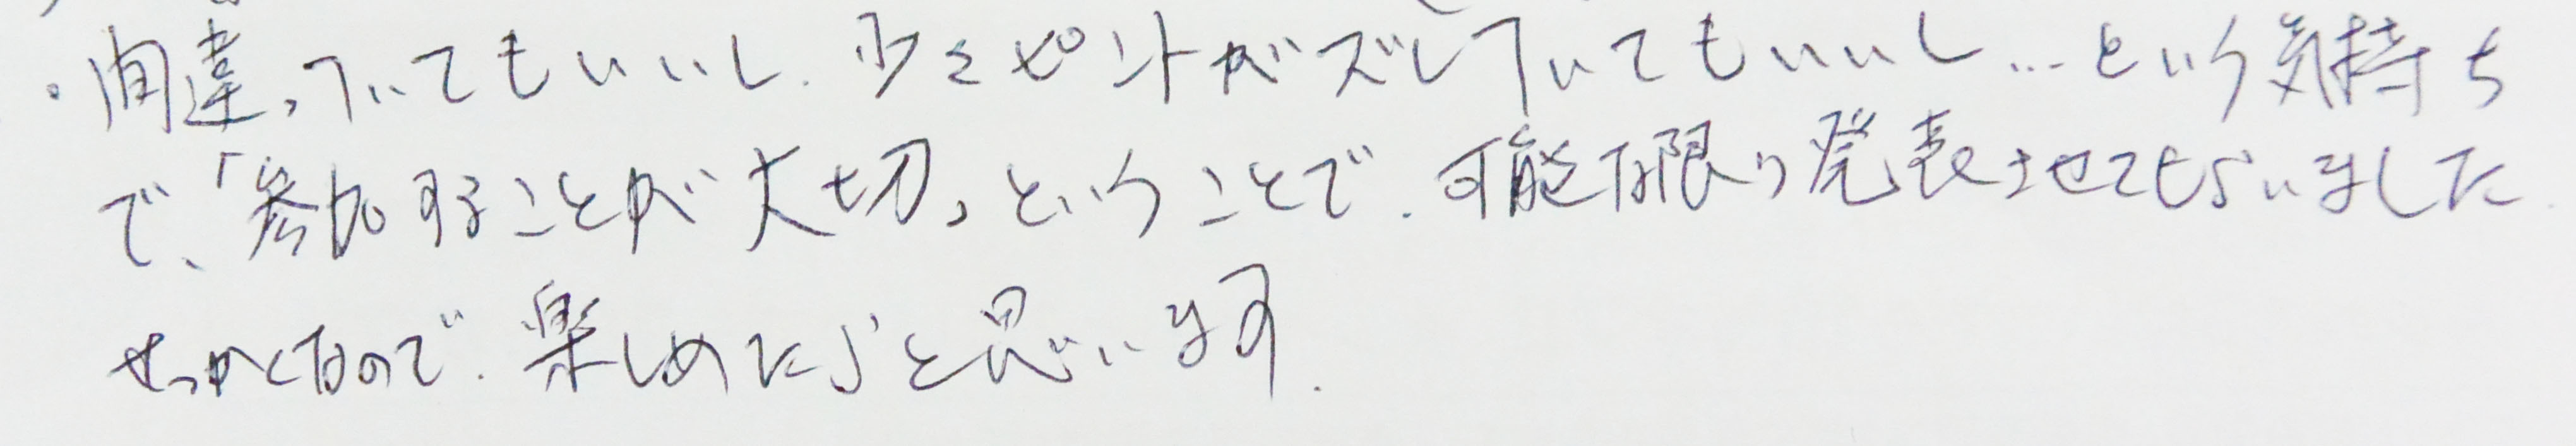 ・間違っていてもいいし、少々ピントがズレていてもいいし…という気持ち
で、「参加することが大切」ということで、可能な限り発表させてもらいました。
せっかくなので、楽しめたらと思います。